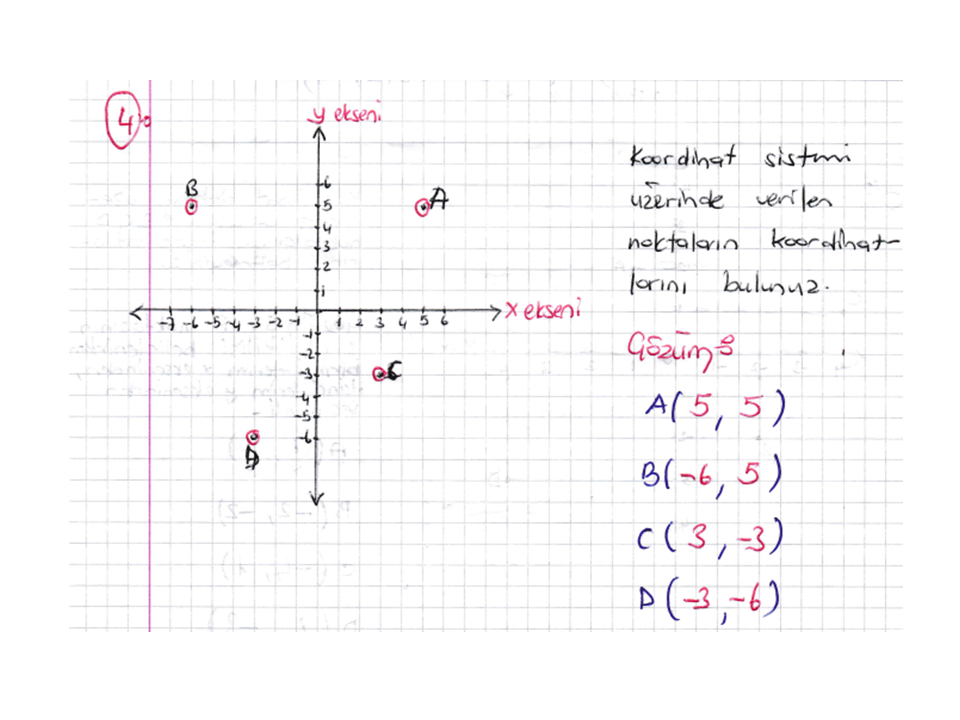 4)
y ekseni
B
A
6
5
4
3
2
1
x ekseni
-7 -6 -5 -4 -3 -2 -1 1 2 3 4 5 6
-1
-2
-3
C
-4
-5
-6
D
Koordinat sistmi
üzerinde verilen
noktaların koordinat-
larını bulunuz.
Çözüm:
A(5, 5)
B(-6, 5)
C(3, -3)
D(-3, -6)